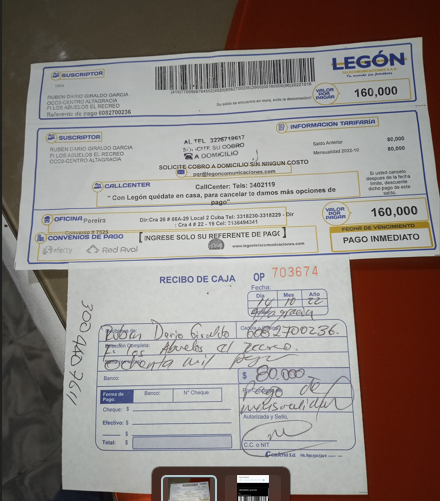 SUSCRIPTOR
RUBEN DARIO GIRALDO GARCIA
OCOS-CENTRO ALTAGRACIA
FI LOS ABUELOS EL RECREO
Referente de pago 6082700236
LEGÓN
TELECOMUNICACIONES S.A.S
VALOR POR PAGAR
160,000
SUSCRIPTOR
RUBEN DARIO GIRALDO GARCIA
FI LOS ABUELOS EL RECREO
OCOS-CENTRO ALTAGRACIA
AL TEL 3226719617
SU COBRO
A DOMICILIO
SOLICITE COBRO A DOMICILIO SIN NINGUN COSTO
pqr@legoncomunicaciones.com
INFORMACION TARIFARIA
Saldo Anterior 80,000
Mensualidad 2022-10 80,000
CALLCENTER
CallCenter: Tels: 3402119
" Con Legón quédate en casa, para cancelar te damos más opciones de pago"
El usted cancela después de la fecha límite, descuente dicho pago de este saldo.
OFICINA Pereira
Dir:Cra 26 # 66A-29 Local 2 Cuba Tel: 3318230-3318229 - Dir
: Cra 4 # 22 - 19 Cel: 3136494341
VALOR POR PAGAR
160,000
CONVENIOS DE PAGO
[ INGRESE SOLO SU REFERENTE DE PAGO ]
Efecty
Red Aval
FECHA DE VENCIMIENTO
PAGO INMEDIATO
RECIBO DE CAJA OP 703674
Fecha:
Día Mes Año
14 10 22
Altagracia
Ruben Dario Giraldo 6082700236.
Fi Los Abuelos el recreo.
Ochenta mil pesos
Banco:
$ 80.000
Forma de Pago: Banco: N° Cheque:
pago de
mensualidad
Cheque: $
Autorizada y Sello,
Efectivo: $
$
Total: $
C.C. o NIT